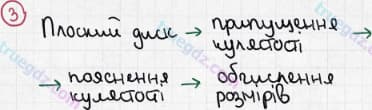 3 Плоский диск → припущення →
кулястості
→ пояснення → обчислення
кулястості розмірів